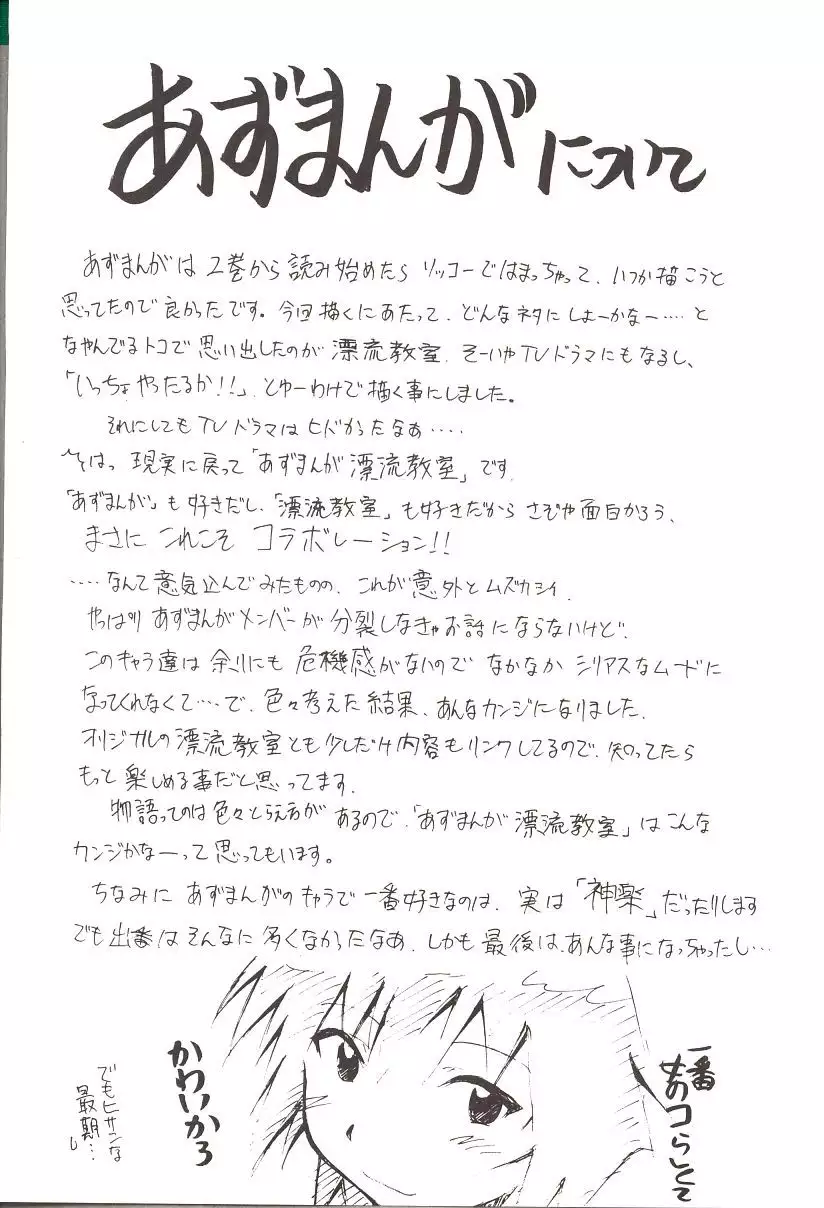 あずまんがについて
あずまんがは2巻から読み始めたらソッコーではまっちゃって、いつか描こうと
思ってたので良かったです。今回描くにあたって、どんなネタにしよーかなー‥‥と
なやんでるトコで思い出したのが漂流教室、そーいやTVドラマにもなるし、
「いっちょやったるか!!」とゆーわけで描く事にしました。
それにしてもTVドラマはヒドかったなぁ‥‥
現実に戻って「あずまんが漂流教室」です。
「あずまんが」も好きだし、「漂流教室」も好きだからさぞや面白かろう、
まさにこれこそコラボレーション!!
‥‥なんて意気込んでみたものの、これが意外とムズカシイ。
やっぱりあずまんがメンバーが分裂しなきゃお話にならないけど、
このキャラ達は余りにも危機感がないのでなかなかシリアスなムードに
なってくれなくて‥‥で、色々考えた結果、あんなカンジになりました。
オリジナルの漂流教室とも少しだけ内容もリンクしてるので、知ってたら
もっと楽しめる事だと思ってます。
物語ってのは色々とらえ方があるので、「あずまんが漂流教室」はこんな
カンジかなーって思ってもいます。
ちなみにあずまんがのキャラで一番好きなのは、実は「神楽」だったりします
でも出番はそんなに多くなかったなあ、しかも最後は、あんな事になっちゃったし…
一番
オコらしくて
かわいかろ
でもヒサンな
最期…